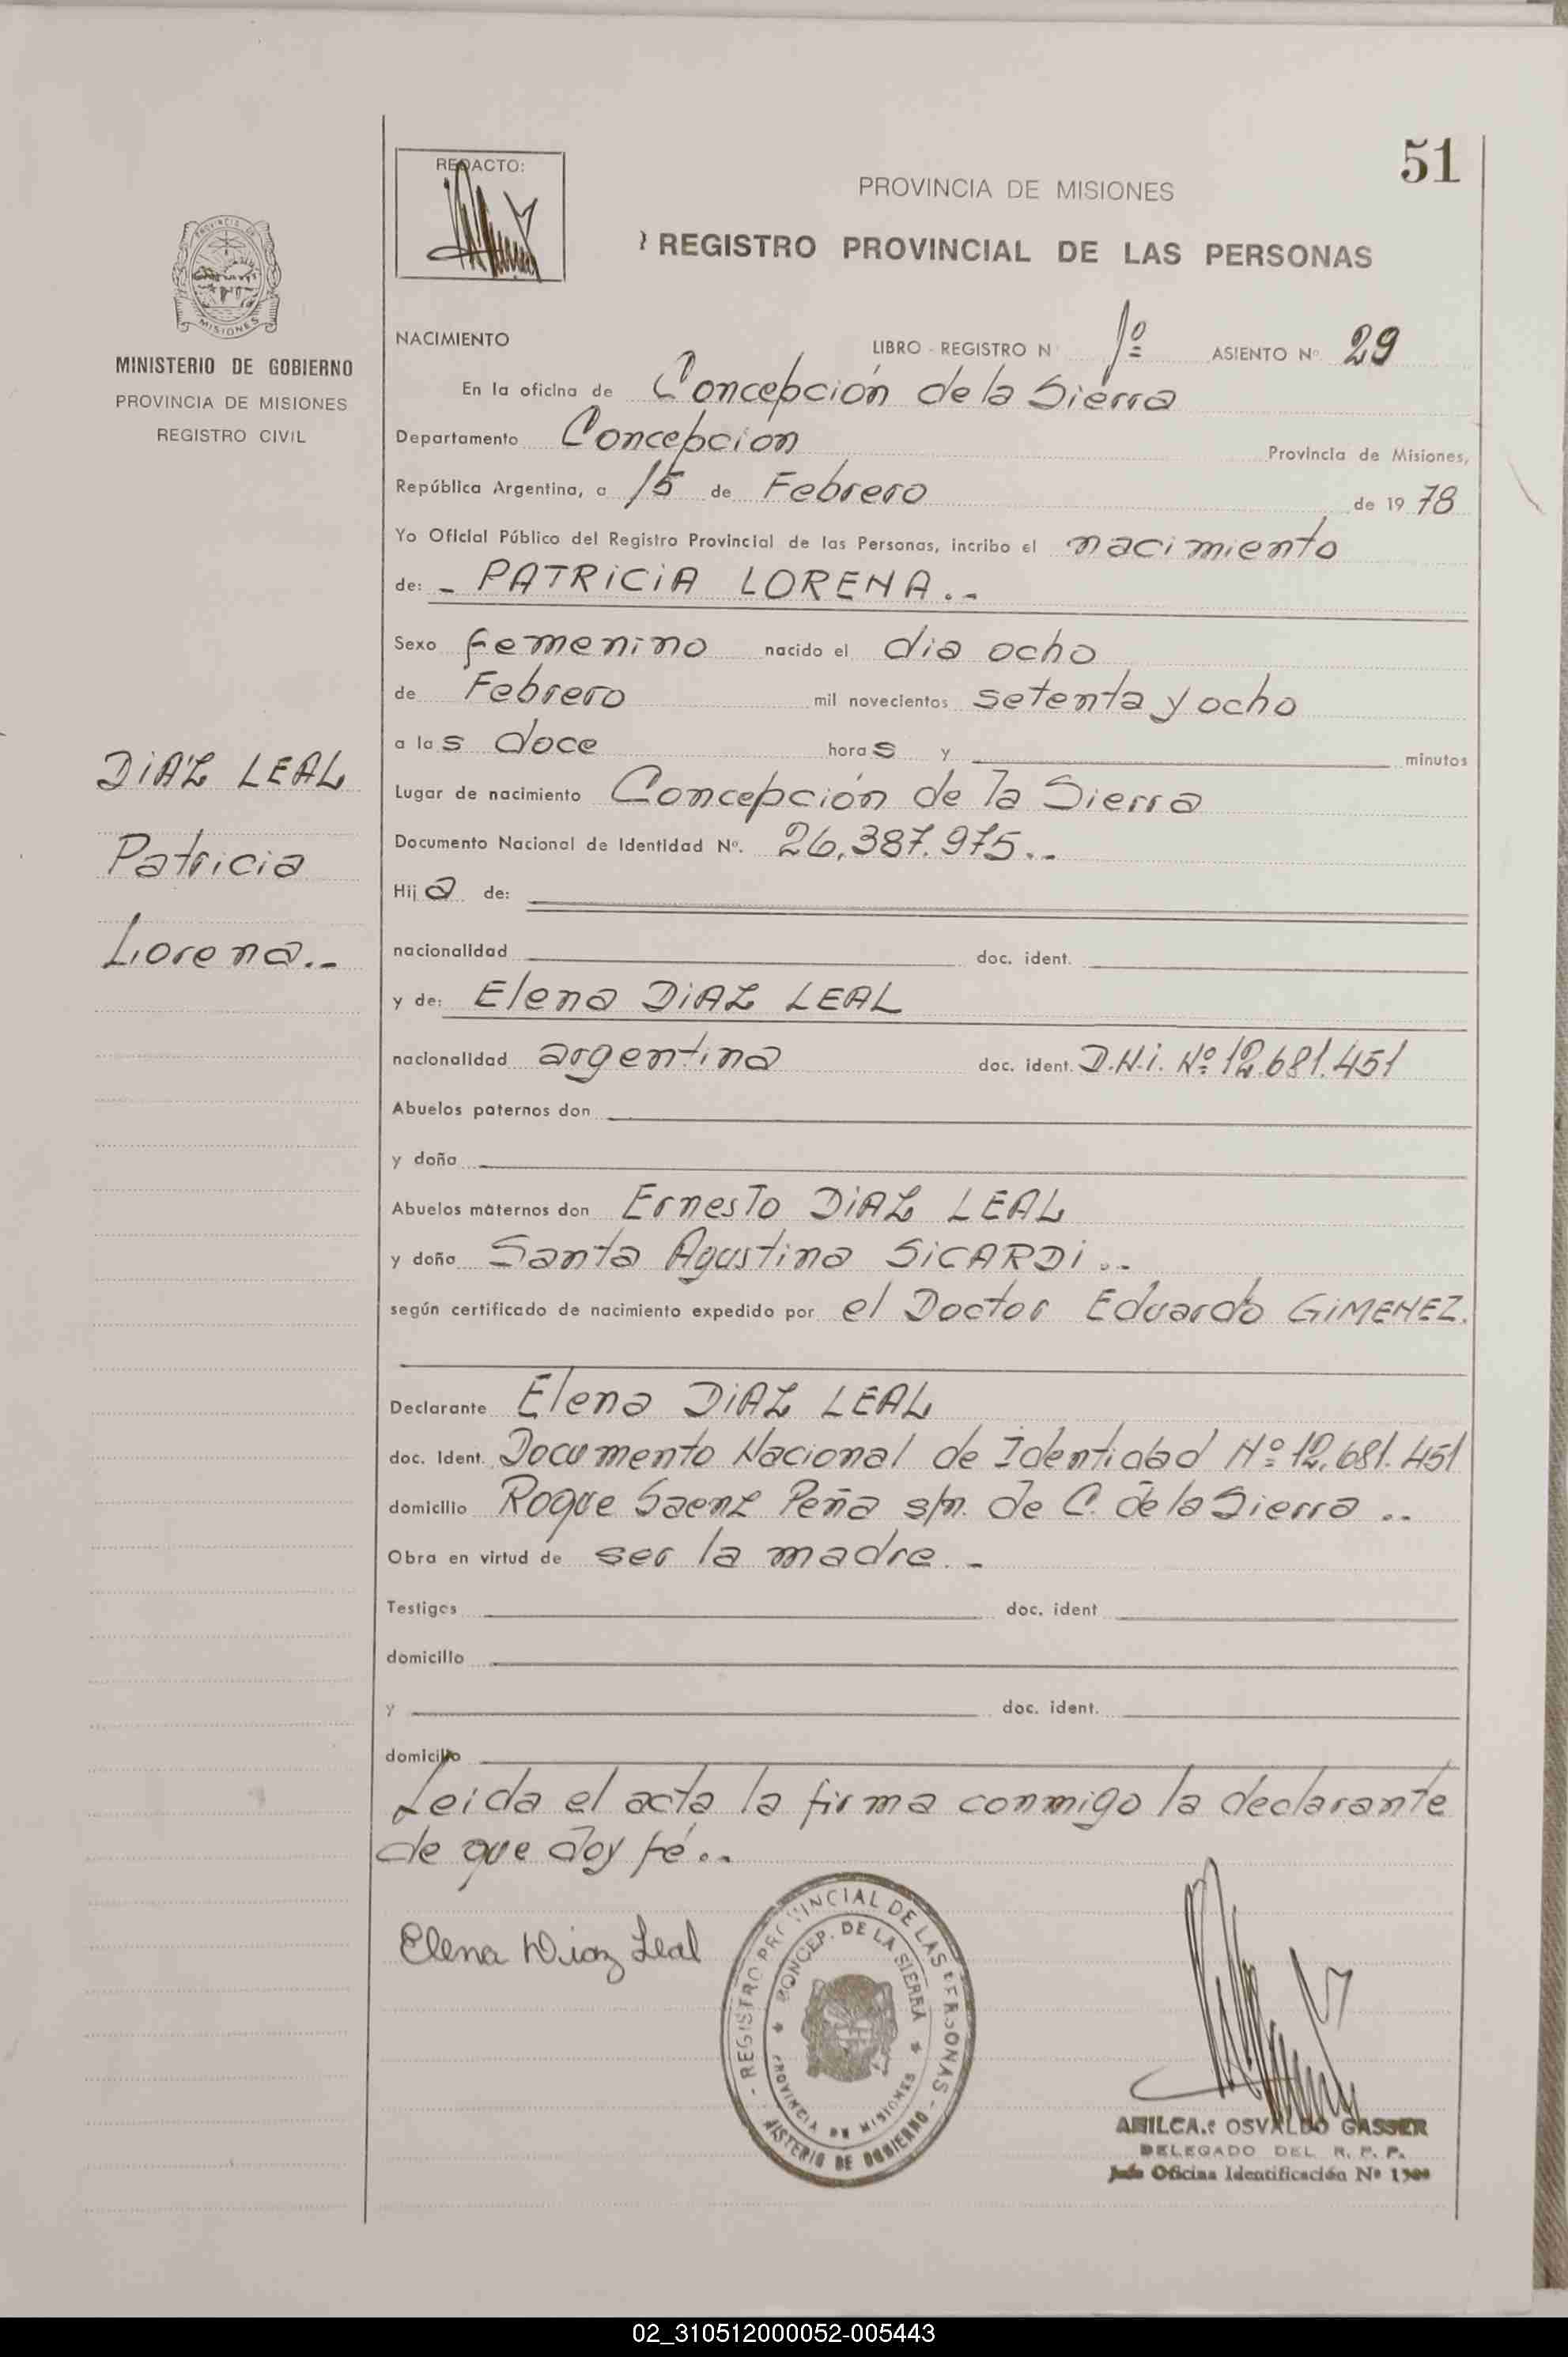 51
REDACTO:
PROVINCIA DE MISIONES
REGISTRO PROVINCIAL DE LAS PERSONAS
MISIONES
MINISTERIO DE GOBIERNO
PROVINCIA DE MISIONES
REGISTRO CIVIL
NACIMIENTO LIBRO - REGISTRO N 1º ASIENTO Nº 29
En la oficina de Concepción de la Sierra
Departamento Concepción Provincia de Misiones,
República Argentina, a 15 de Febrero de 1978
Yo Oficial Público del Registro Provincial de las Personas, incribo el nacimiento
de: - PATRICIA LORENA.-
Sexo femenino nacido el dia ocho
de Febrero mil novecientos setenta y ocho
a las doce horas y minutos
DIAZ LEAL
Patricia
Lorena.-
Lugar de nacimiento Concepción de la Sierra
Documento Nacional de Identidad Nº. 26.387.975..
Hija de:
nacionalidad doc. ident.
y de: Elena DIAZ LEAL
nacionalidad argentina doc. ident. D.N.i. Nº 12.681.451
Abuelos paternos don
y doña
Abuelos maternos don Ernesto DIAZ LEAL
y doña Santa Agustina SICARDI..
según certificado de nacimiento expedido por el Doctor Eduardo GIMENEZ.
Declarante Elena DIAZ LEAL
doc. Ident. Documento Nacional de Identidad Nº 12.681.451
domicilio Roque Saenz Peña s/n. de C. de la Sierra ..
Obra en virtud de ser la madre.-
Testigos doc. ident
domicilio
y doc. ident.
domicilio
Leida el acta la firma conmigo la declarante
de que doy fé..
Elena Diaz Leal
- REGISTRO PROVINCIAL DE LAS PERSONAS -
CONCEP. DE LA SIERRA
PROVINCIA DE MISIONES
MINISTERIO DE GOBIERNO
OSVALDO GASSER
DELEGADO DEL R. P. P.
Oficina Identificación Nº
02_310512000052-005443